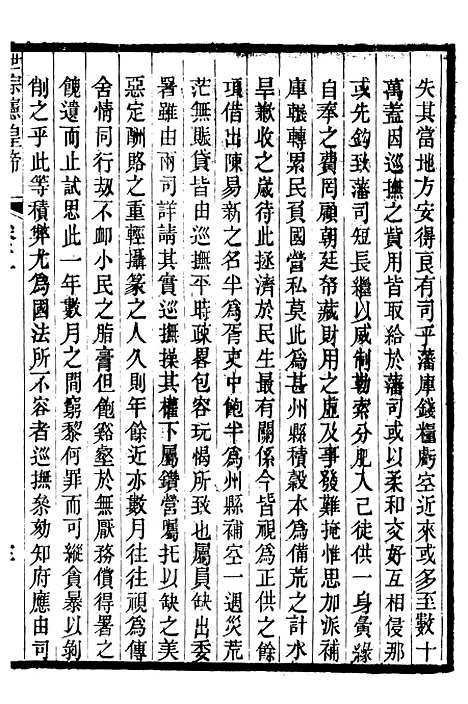 失其當地方安得良有司乎藩庫錢糧虧空近來或多至數十
萬蓋因巡撫之貲用皆取給於藩司或以柔和交好互相侵那
或先鉤致藩司短長繼以威制勒索分肥入己徒供一身夤緣
自奉之費罔顧朝廷帑藏財用之虛及事發難掩惟思加派補
庫輾轉累民負國營私莫此爲甚州縣積穀本爲備荒之計水
旱歉收之歲待此拯濟於民生最有關係今皆視爲正供之餘
項借出陳易新之名半爲胥吏中飽半爲州縣補空一遇災荒
茫無賑貸皆由巡撫平時疎畧包容玩愒所致也屬員缺出委
署雖由兩司詳請其實巡撫操其權下屬鑽營囑托以缺之美
惡定酬賂之重輕攝篆之人久則年餘近亦數月往往視爲傳
舍情同行刼不卹小民之脂膏但飽谿壑於無厭務償得署之
餽遺而止試思此一年數月之間窮黎何罪而可縱貪暴以剝
削之乎此等積獘尤爲國法所不容者巡撫叅劾知府應由司
世宗憲皇帝